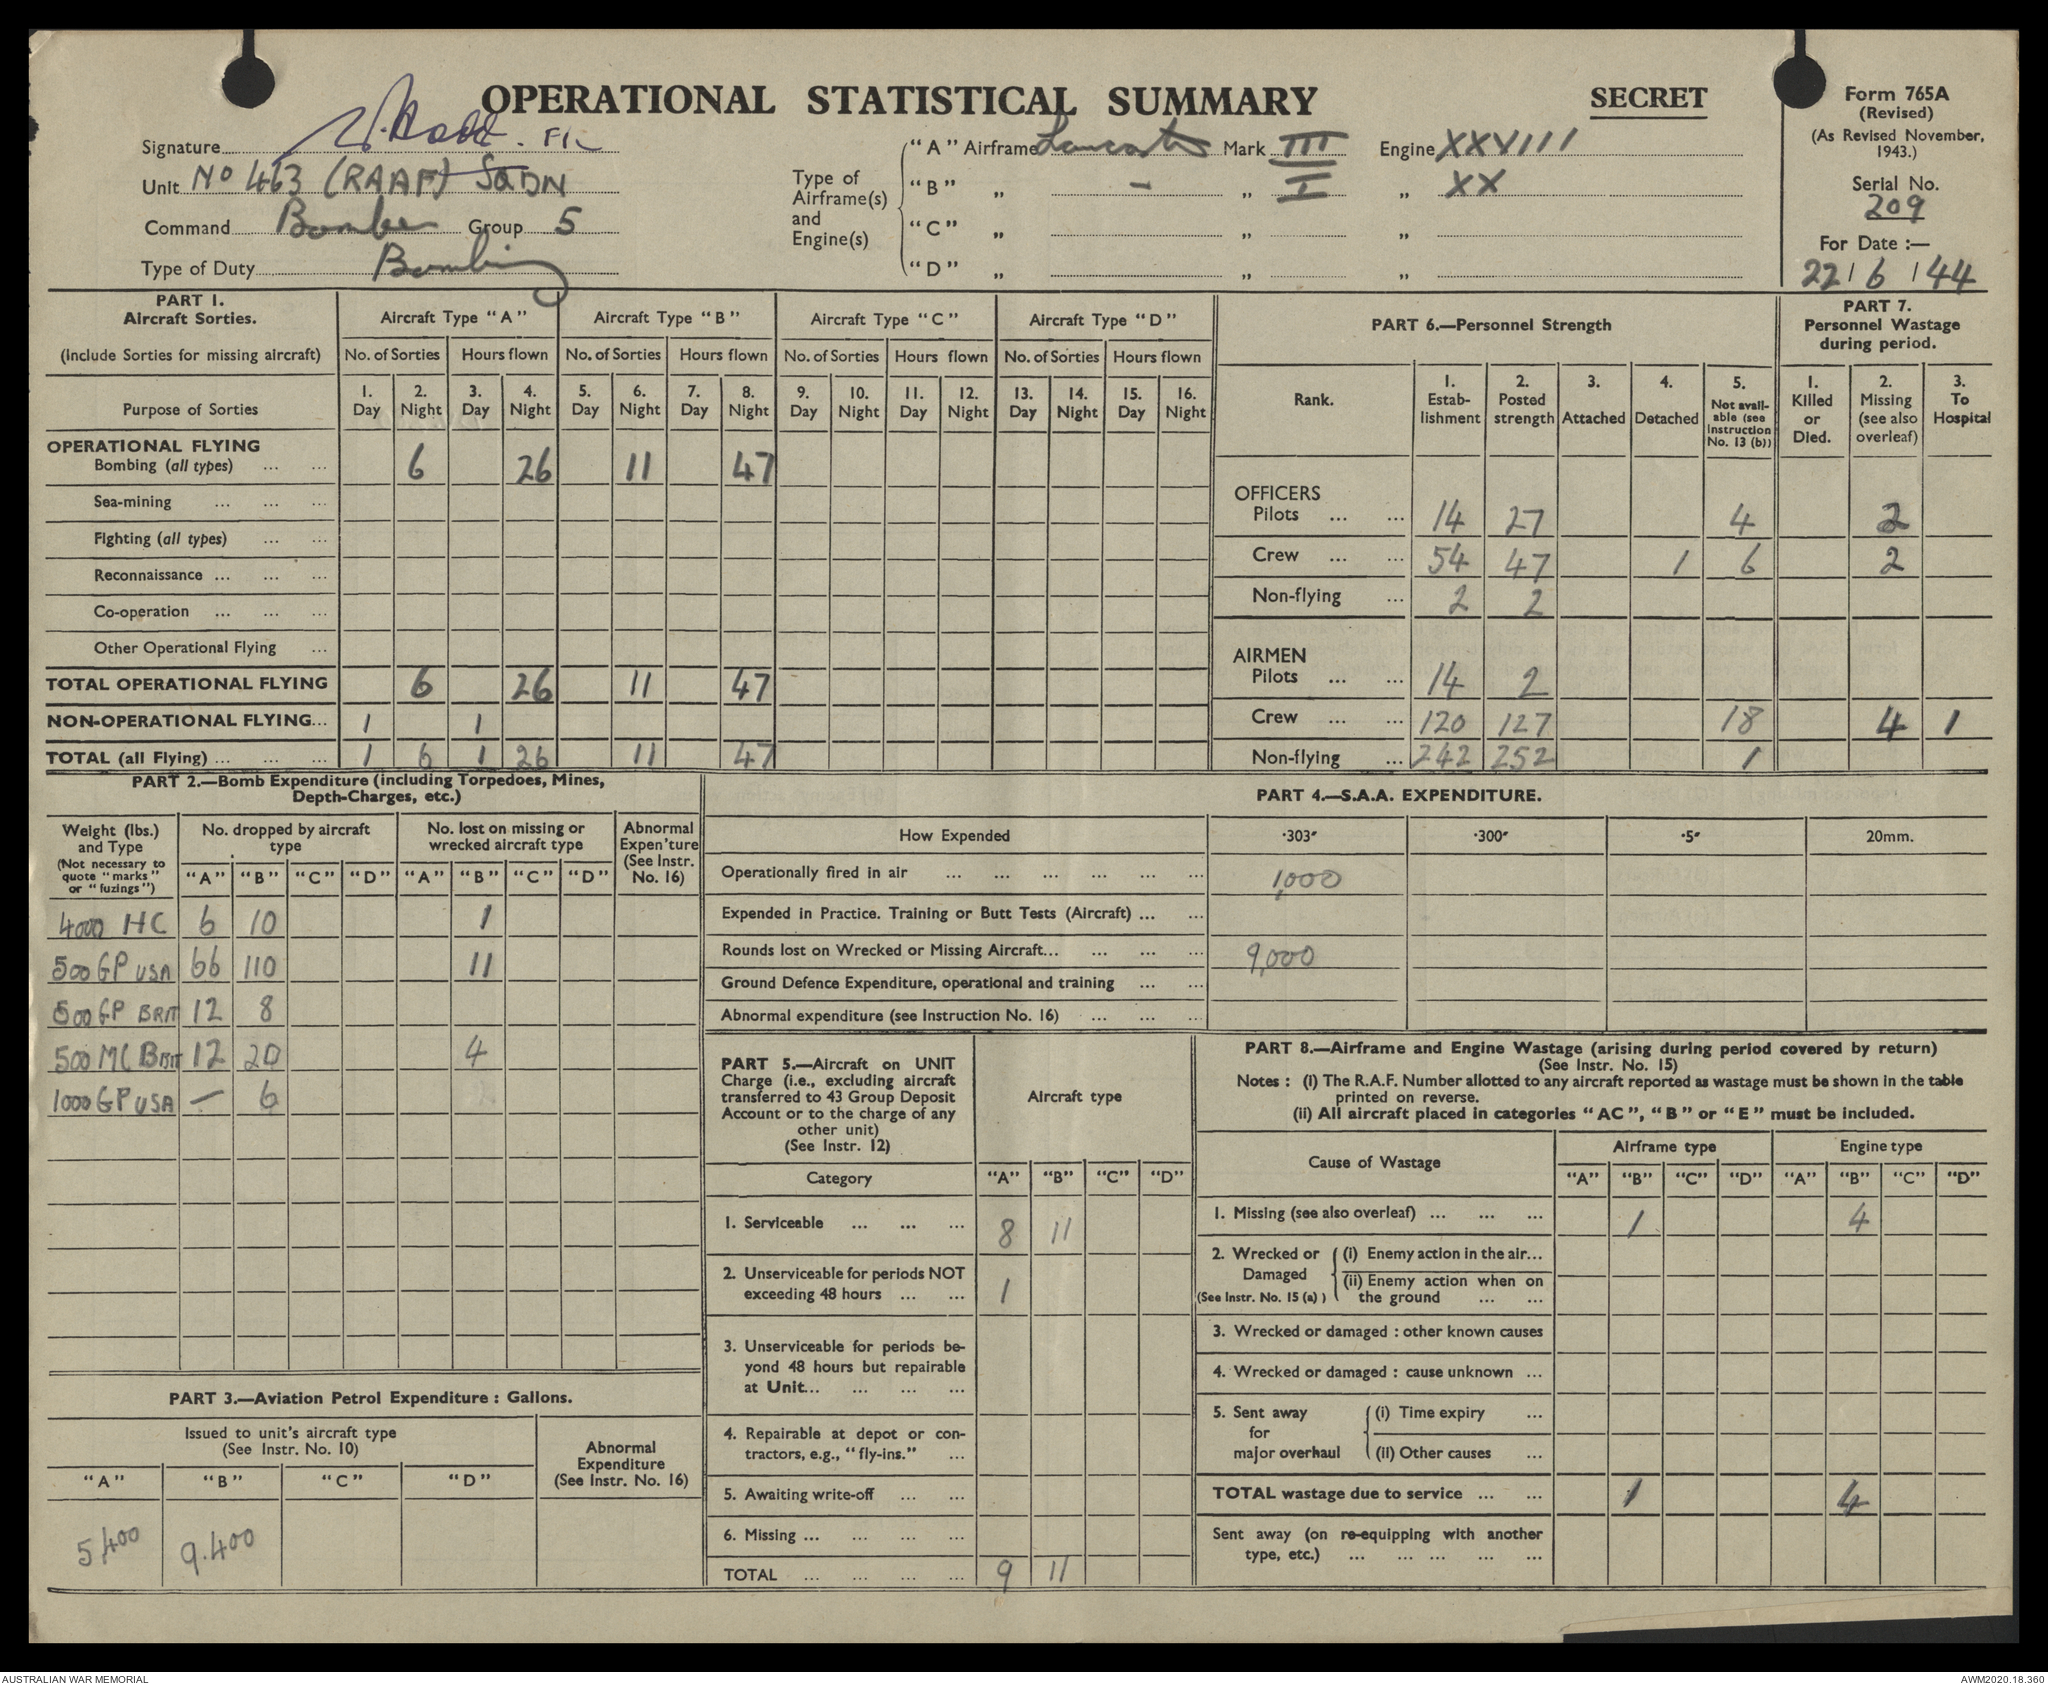 OPERATIONAL STATISTICAL SUMMARY
SECRET
Form 765A
(Revised)
(As Revised November, 1943.)
Serial No.
209
For Date :—
22/6/44
Signature
Unit No 463 (RAAF) SQDN
Command Bomber Group 5
Type of Duty Bombing
Type of Airframe(s) and Engine(s)
"A" Airframe Lancaster Mark III Engine XXVIII
"B" „ - „ I „ XX
"C" „ „ „
"D" „ „ „
PART 1.
Aircraft Sorties.
(Include Sorties for missing aircraft)
Aircraft Type "A" Aircraft Type "B" Aircraft Type "C" Aircraft Type "D"
No. of Sorties Hours flown No. of Sorties Hours flown No. of Sorties Hours flown No. of Sorties Hours flown
Purpose of Sorties
1. Day 2. Night 3. Day 4. Night 5. Day 6. Night 7. Day 8. Night 9. Day 10. Night 11. Day 12. Night 13. Day 14. Night 15. Day 16. Night
OPERATIONAL FLYING
Bombing (all types) ... ... 6 26 11 47
Sea-mining ... ... ...
Fighting (all types) ... ...
Reconnaissance ... ... ...
Co-operation ... ... ...
Other Operational Flying ...
TOTAL OPERATIONAL FLYING 6 26 11 47
NON-OPERATIONAL FLYING... 1 1
TOTAL (all Flying) ... ... ... 1 6 1 26 11 47
PART 6.—Personnel Strength
Rank.
1. Estab-lishment
2. Posted strength
3. Attached
4. Detached
5. Not avail-able (see Instruction No. 13 (b))
PART 7.
Personnel Wastage during period.
1. Killed or Died.
2. Missing (see also overleaf)
3. To Hospital
OFFICERS
Pilots ... ... 14 27 4 2
Crew ... ... 54 47 1 6 2
Non-flying ... 2 2
AIRMEN
Pilots ... ... 14 2
Crew ... ... 120 127 18 4 1
Non-flying ... 242 252 1
PART 2.—Bomb Expenditure (including Torpedoes, Mines, Depth-Charges, etc.)
Weight (lbs.) and Type
(Not necessary to quote "marks" or "fuzings")
No. dropped by aircraft type
No. lost on missing or wrecked aircraft type
Abnormal Expen'ture (See Instr. No. 16)
"A" "B" "C" "D" "A" "B" "C" "D"
4000 HC 6 10 1
500 GP USA 66 110 11
500 GP BRIT 12 8
500 MC Brit 12 20 4
1000 GP USA — 6
PART 3.—Aviation Petrol Expenditure : Gallons.
Issued to unit's aircraft type
(See Instr. No. 10)
Abnormal Expenditure (See Instr. No. 16)
"A" "B" "C" "D"
5,400 9.400
PART 4.—S.A.A. EXPENDITURE.
How Expended ·303″ ·300″ ·5″ 20mm.
Operationally fired in air ... ... ... ... ... ... 1,000
Expended in Practice. Training or Butt Tests (Aircraft) ... ...
Rounds lost on Wrecked or Missing Aircraft... ... ... ... 9,000
Ground Defence Expenditure, operational and training ... ...
Abnormal expenditure (see Instruction No. 16) ... ... ...
PART 5.—Aircraft on UNIT
Charge (i.e., excluding aircraft
transferred to 43 Group Deposit
Account or to the charge of any
other unit)
(See Instr. 12)
Aircraft type
Category "A" "B" "C" "D"
1. Serviceable ... ... ... 8 11
2. Unserviceable for periods NOT
exceeding 48 hours ... ... 1
3. Unserviceable for periods be-
yond 48 hours but repairable
at Unit... ... ... ...
4. Repairable at depot or con-
tractors, e.g., "fly-ins." ...
5. Awaiting write-off ... ...
6. Missing ... ... ... ...
TOTAL ... ... ... ... 9 11
PART 8.—Airframe and Engine Wastage (arising during period covered by return)
(See Instr. No. 15)
Notes : (i) The R.A.F. Number allotted to any aircraft reported as wastage must be shown in the table
printed on reverse.
(ii) All aircraft placed in categories "AC", "B" or "E" must be included.
Cause of Wastage
Airframe type Engine type
"A" "B" "C" "D" "A" "B" "C" "D"
1. Missing (see also overleaf) ... ... ... 1 4
2. Wrecked or Damaged (See Instr. No. 15 (a) )
(i) Enemy action in the air...
(ii) Enemy action when on
the ground ... ...
3. Wrecked or damaged : other known causes
4. Wrecked or damaged : cause unknown ...
5. Sent away for major overhaul
(i) Time expiry ...
(ii) Other causes ...
TOTAL wastage due to service ... ... 1 4
Sent away (on re-equipping with another
type, etc.) ... ... ... ... ...
AUSTRALIAN WAR MEMORIAL
AWM2020.18.360